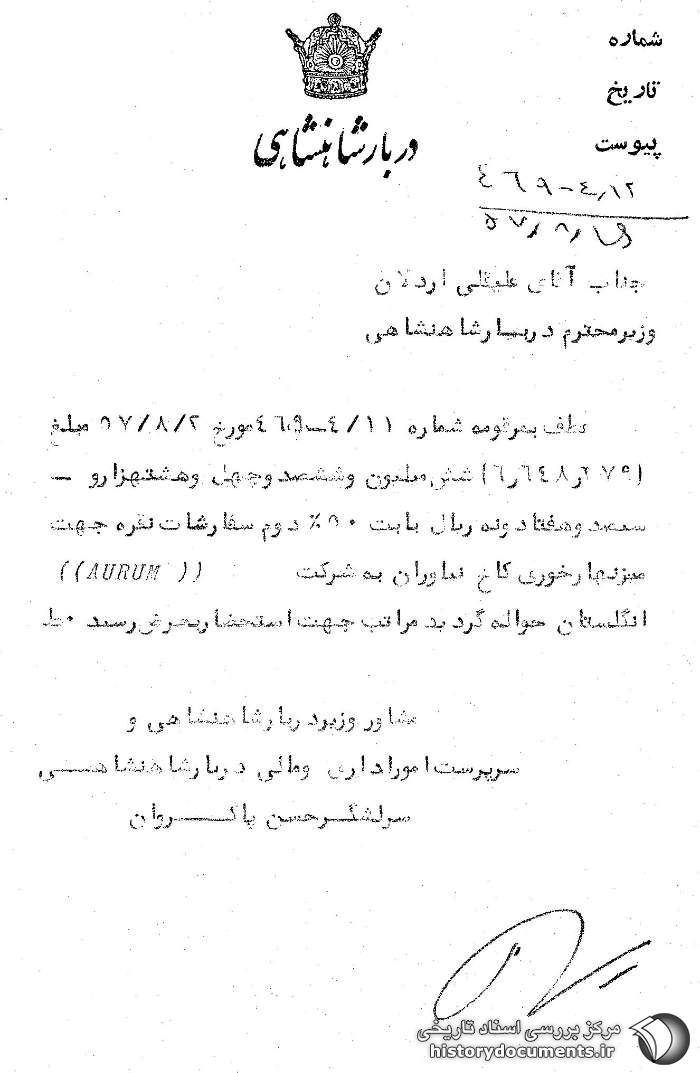 شماره
تاریخ
پیوست
دربار شاهنشاهی
۴۶۹-۴٫۱۲
۵۷٫۸٫
جناب آقای علیقلی اردلان
وزیر محترم دربار شاهنشاهی
عطف بمرقومه شماره ۴/۱۱-۴۶۹ مورخ ۵۷/۸/۲ مبلغ
(۶٫۶۴۸٫۲۷۹) شش ملیون وششصد وچهل وهشتهزارو -
سیصد وهفتاد ونه ریال بابت ۵۰٪ دوم سفارشات نقره جهت
میزنهارخوری کاخ نیاوران به شرکت ((AURUM))
انگلستان حواله گردید مراتب جهت استحضار بعرض رسید ۰ط
مشاور وزیر دربار شاهنشاهی و
سرپرست امور اداری ومالی دربار شاهنشاهی
سرلشگر حسن پاکروان
مرکز بررسی اسناد تاریخی
historydocuments.ir